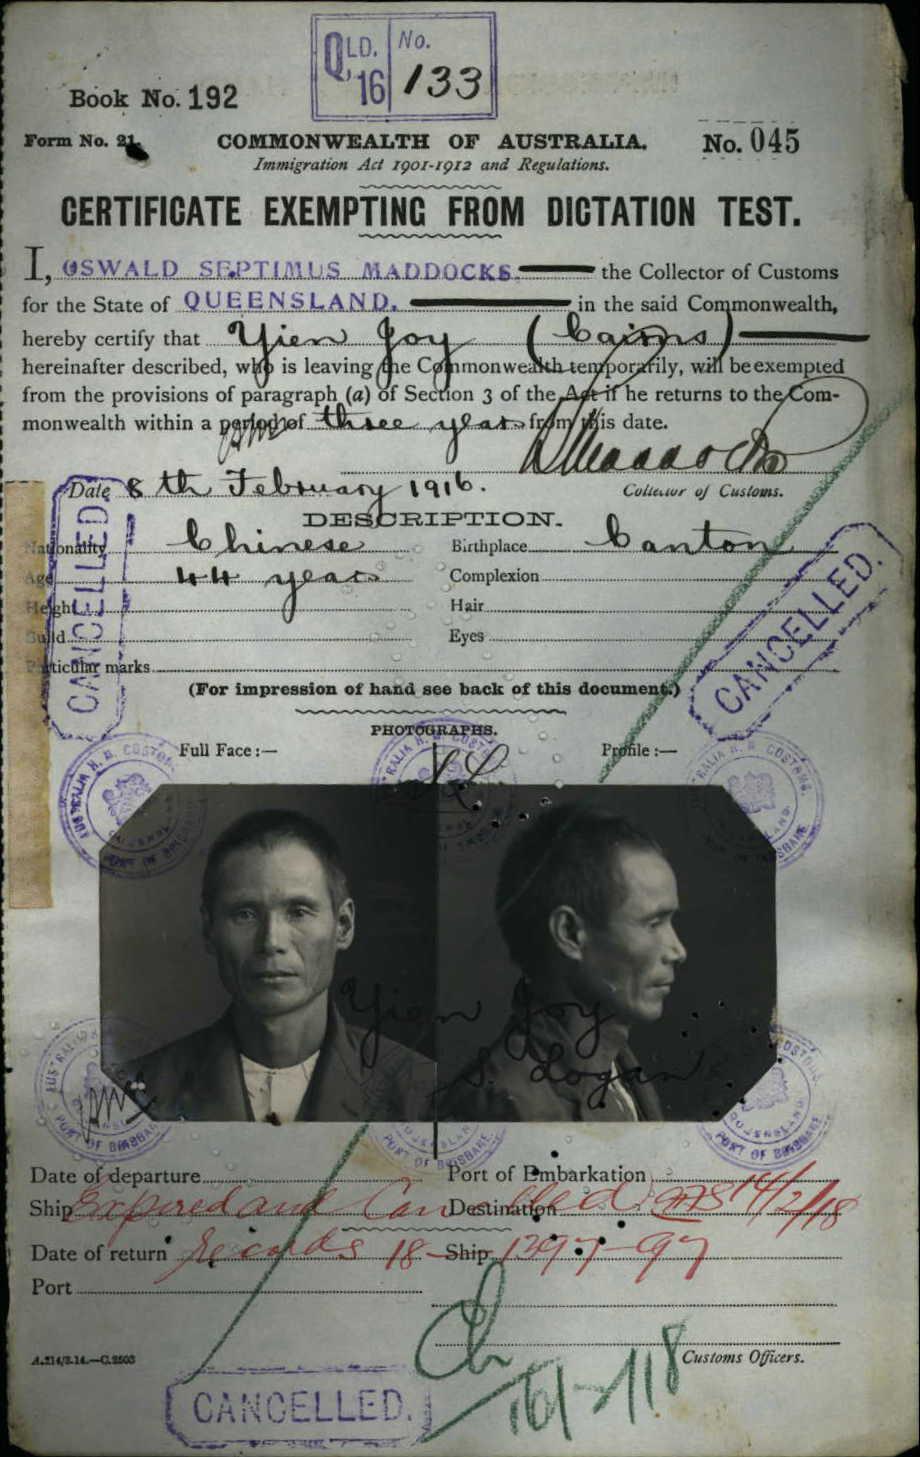 QLD. 16 No. 133
Book No. 192
Form No. 21. COMMONWEALTH OF AUSTRALIA. No. 045
Immigration Act 1901-1912 and Regulations.
CERTIFICATE EXEMPTING FROM DICTATION TEST.
I, OSWALD SEPTIMUS MADDOCKS. the Collector of Customs
for the State of QUEENSLAND. in the said Commonwealth,
hereby certify that Yien Joy (Cairns)
hereinafter described, who is leaving the Commonwealth temporarily, will be exempted
from the provisions of paragraph (a) of Section 3 of the Act if he returns to the Com-
monwealth within a period of three years from this date.
Maddocks
Date 8th February 1916. Collector of Customs.
DESCRIPTION.
Nationality Chinese Birthplace Canton
Age 44 years Complexion
Height Hair
Build Eyes
Particular marks
(For impression of hand see back of this document.)
CANCELLED.
CANCELLED.
PHOTOGRAPHS.
Full Face :— Profile :—
Yien Joy
S. Logan
PORT OF BRISBANE
Date of departure Port of Embarkation
Ship Destination
Expired and Cancelled 14/2/18
Date of return Ship
Records 18-1297-97
Port
161-118
A.214/3.14.—C.2503 Customs Officers.
CANCELLED.